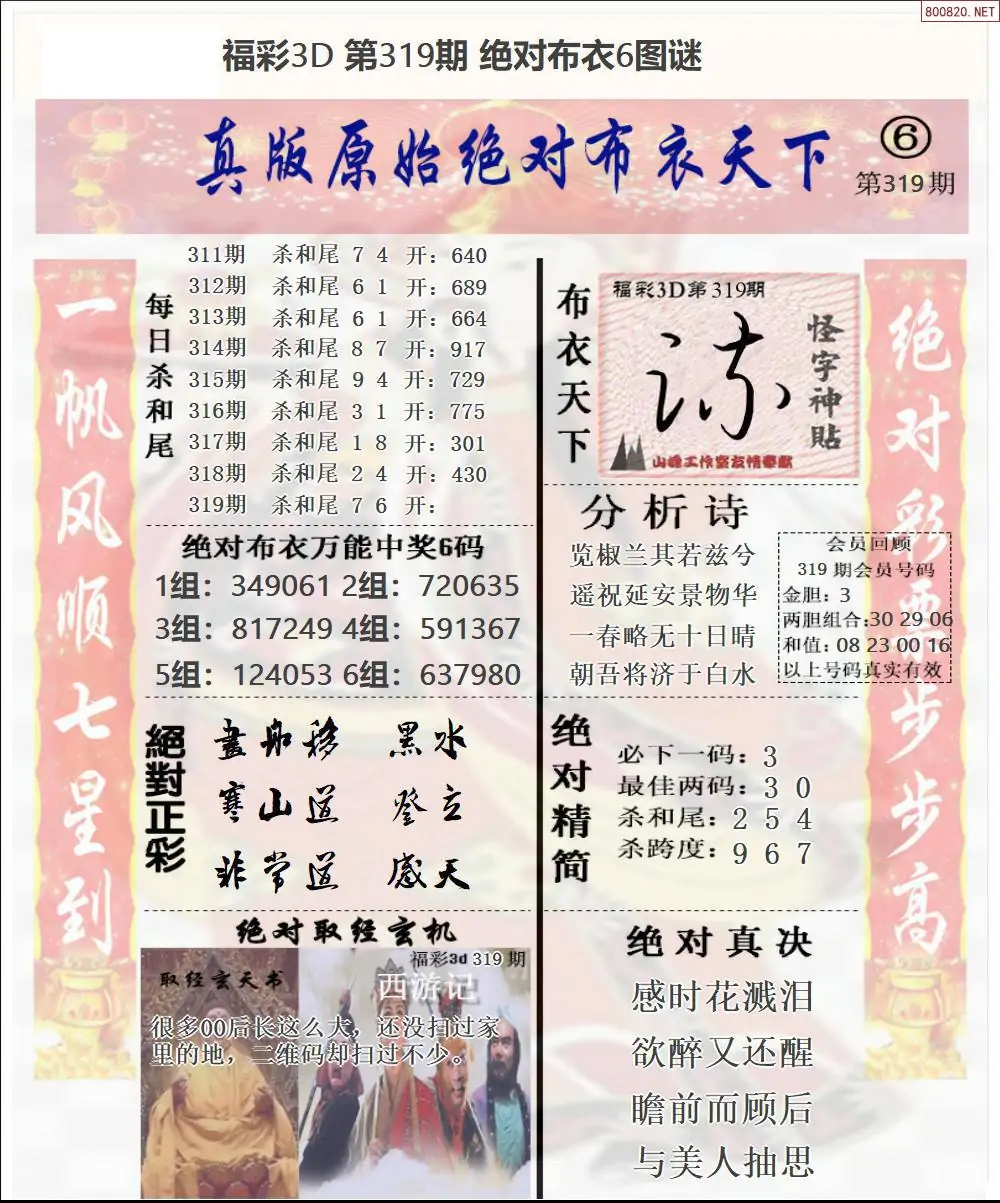 800820.NET
福彩3D 第319期 绝对布衣6图谜
真版原始绝对布衣天下
6
第319期
一帆风顺七星到
每日杀和尾
311期 杀和尾 7 4 开：640
312期 杀和尾 6 1 开：689
313期 杀和尾 6 1 开：664
314期 杀和尾 8 7 开：917
315期 杀和尾 9 4 开：729
316期 杀和尾 3 1 开：775
317期 杀和尾 1 8 开：301
318期 杀和尾 2 4 开：430
319期 杀和尾 7 6 开：
绝对布衣万能中奖6码
1组：349061 2组：720635
3组：817249 4组：591367
5组：124053 6组：637980
絕對正彩
畫舟移 黑水
寒山道 登立
非常道 感天
绝对取经玄机
福彩3d 319 期
取经玄天书
西游记
很多00后长这么大，还没扫过家
里的地，二维码却扫过不少。
布衣天下
福彩3D第319期
怪字神貼
山峰工作室友情奉献
分析诗
览椒兰其若兹兮
遥祝延安景物华
一春略无十日晴
朝吾将济于白水
会员回顾
319 期会员号码
金胆：3
两胆组合:30 29 06
和值：08 23 00 16
以上号码真实有效
绝对精简
必下一码：3
最佳两码：3 0
杀和尾：2 5 4
杀跨度：9 6 7
绝对真决
感时花溅泪
欲醉又还醒
瞻前而顾后
与美人抽思
绝对彩票步步高